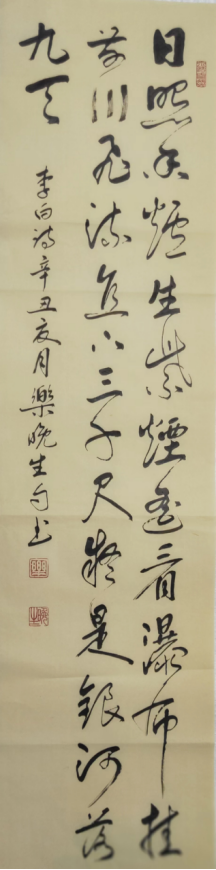 日照香爐生紫煙遙看瀑布挂
前川飛流直下三千尺疑是銀河落
九天
李白詩辛丑夏月樂晚生句書